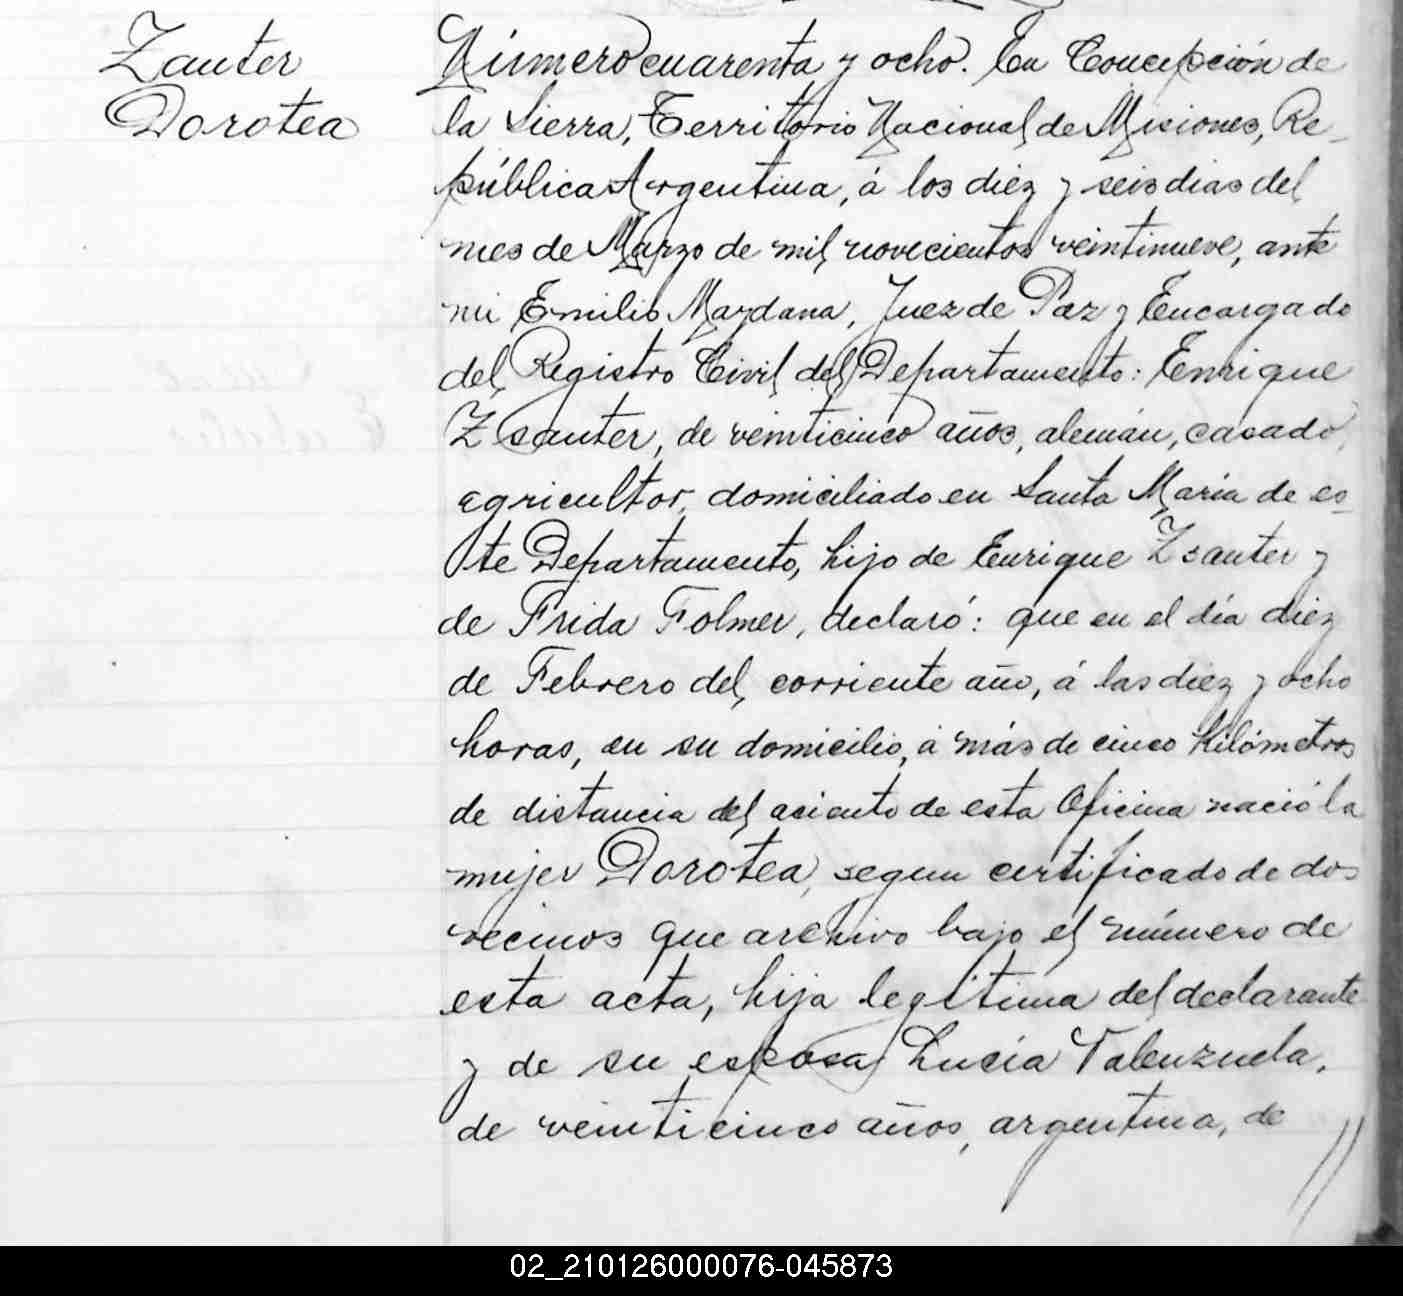 Zauter
Dorotea
Número cuarenta y ocho. En Concepción de
la Sierra, Territorio Nacional de Misiones, Re-
pública Argentina, á los diez y seis dias del
mes de Marzo de mil novecientos veintinueve, ante
mi Emilio Maydana, Juez de Paz y Encargado
del Registro Civil del Departamento: Enrique
Zsauter, de veinticinco años, alemán, casado,
agricultor, domiciliado en Santa María de es-
te Departamento, hijo de Enrique Zsauter y
de Frida Folmer, declaró: que en el día diez
de Febrero del corriente año, á las diez y ocho
horas, en su domicilio, á más de cinco kilómetros
de distancia del asiento de esta Oficina nació la
mujer Dorotea, segun certificado de dos
vecinos que archivo bajo el número de
esta acta, hija legítima del declarante
y de su esposa Lucía Valenzuela,
de veinticinco años, argentina, de
02_210126000076-045873